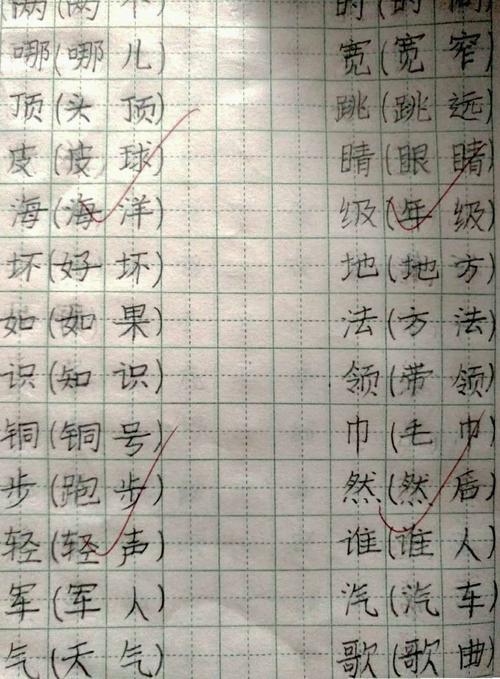 哪(哪儿) 宽(宽窄)
顶(头顶) 跳(跳远)
皮(皮球) 睛(眼睛)
海(海洋) 级(年级)
坏(好坏) 地(地方)
如(如果) 法(方法)
识(知识) 领(带领)
铜(铜号) 巾(毛巾)
步(跑步) 然(然后)
轻(轻声) 谁(谁人)
军(军人) 汽(汽车)
气(天气) 歌(歌曲)